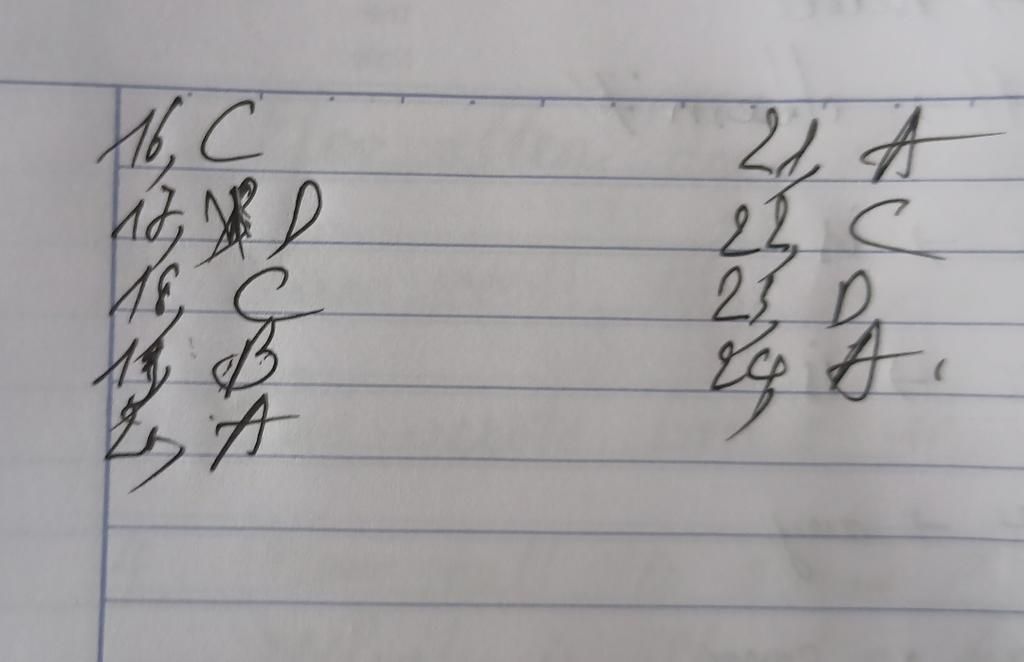 16, C
17, D
18, C
19, B
20, A
21, A
22, C
23, D
24, A